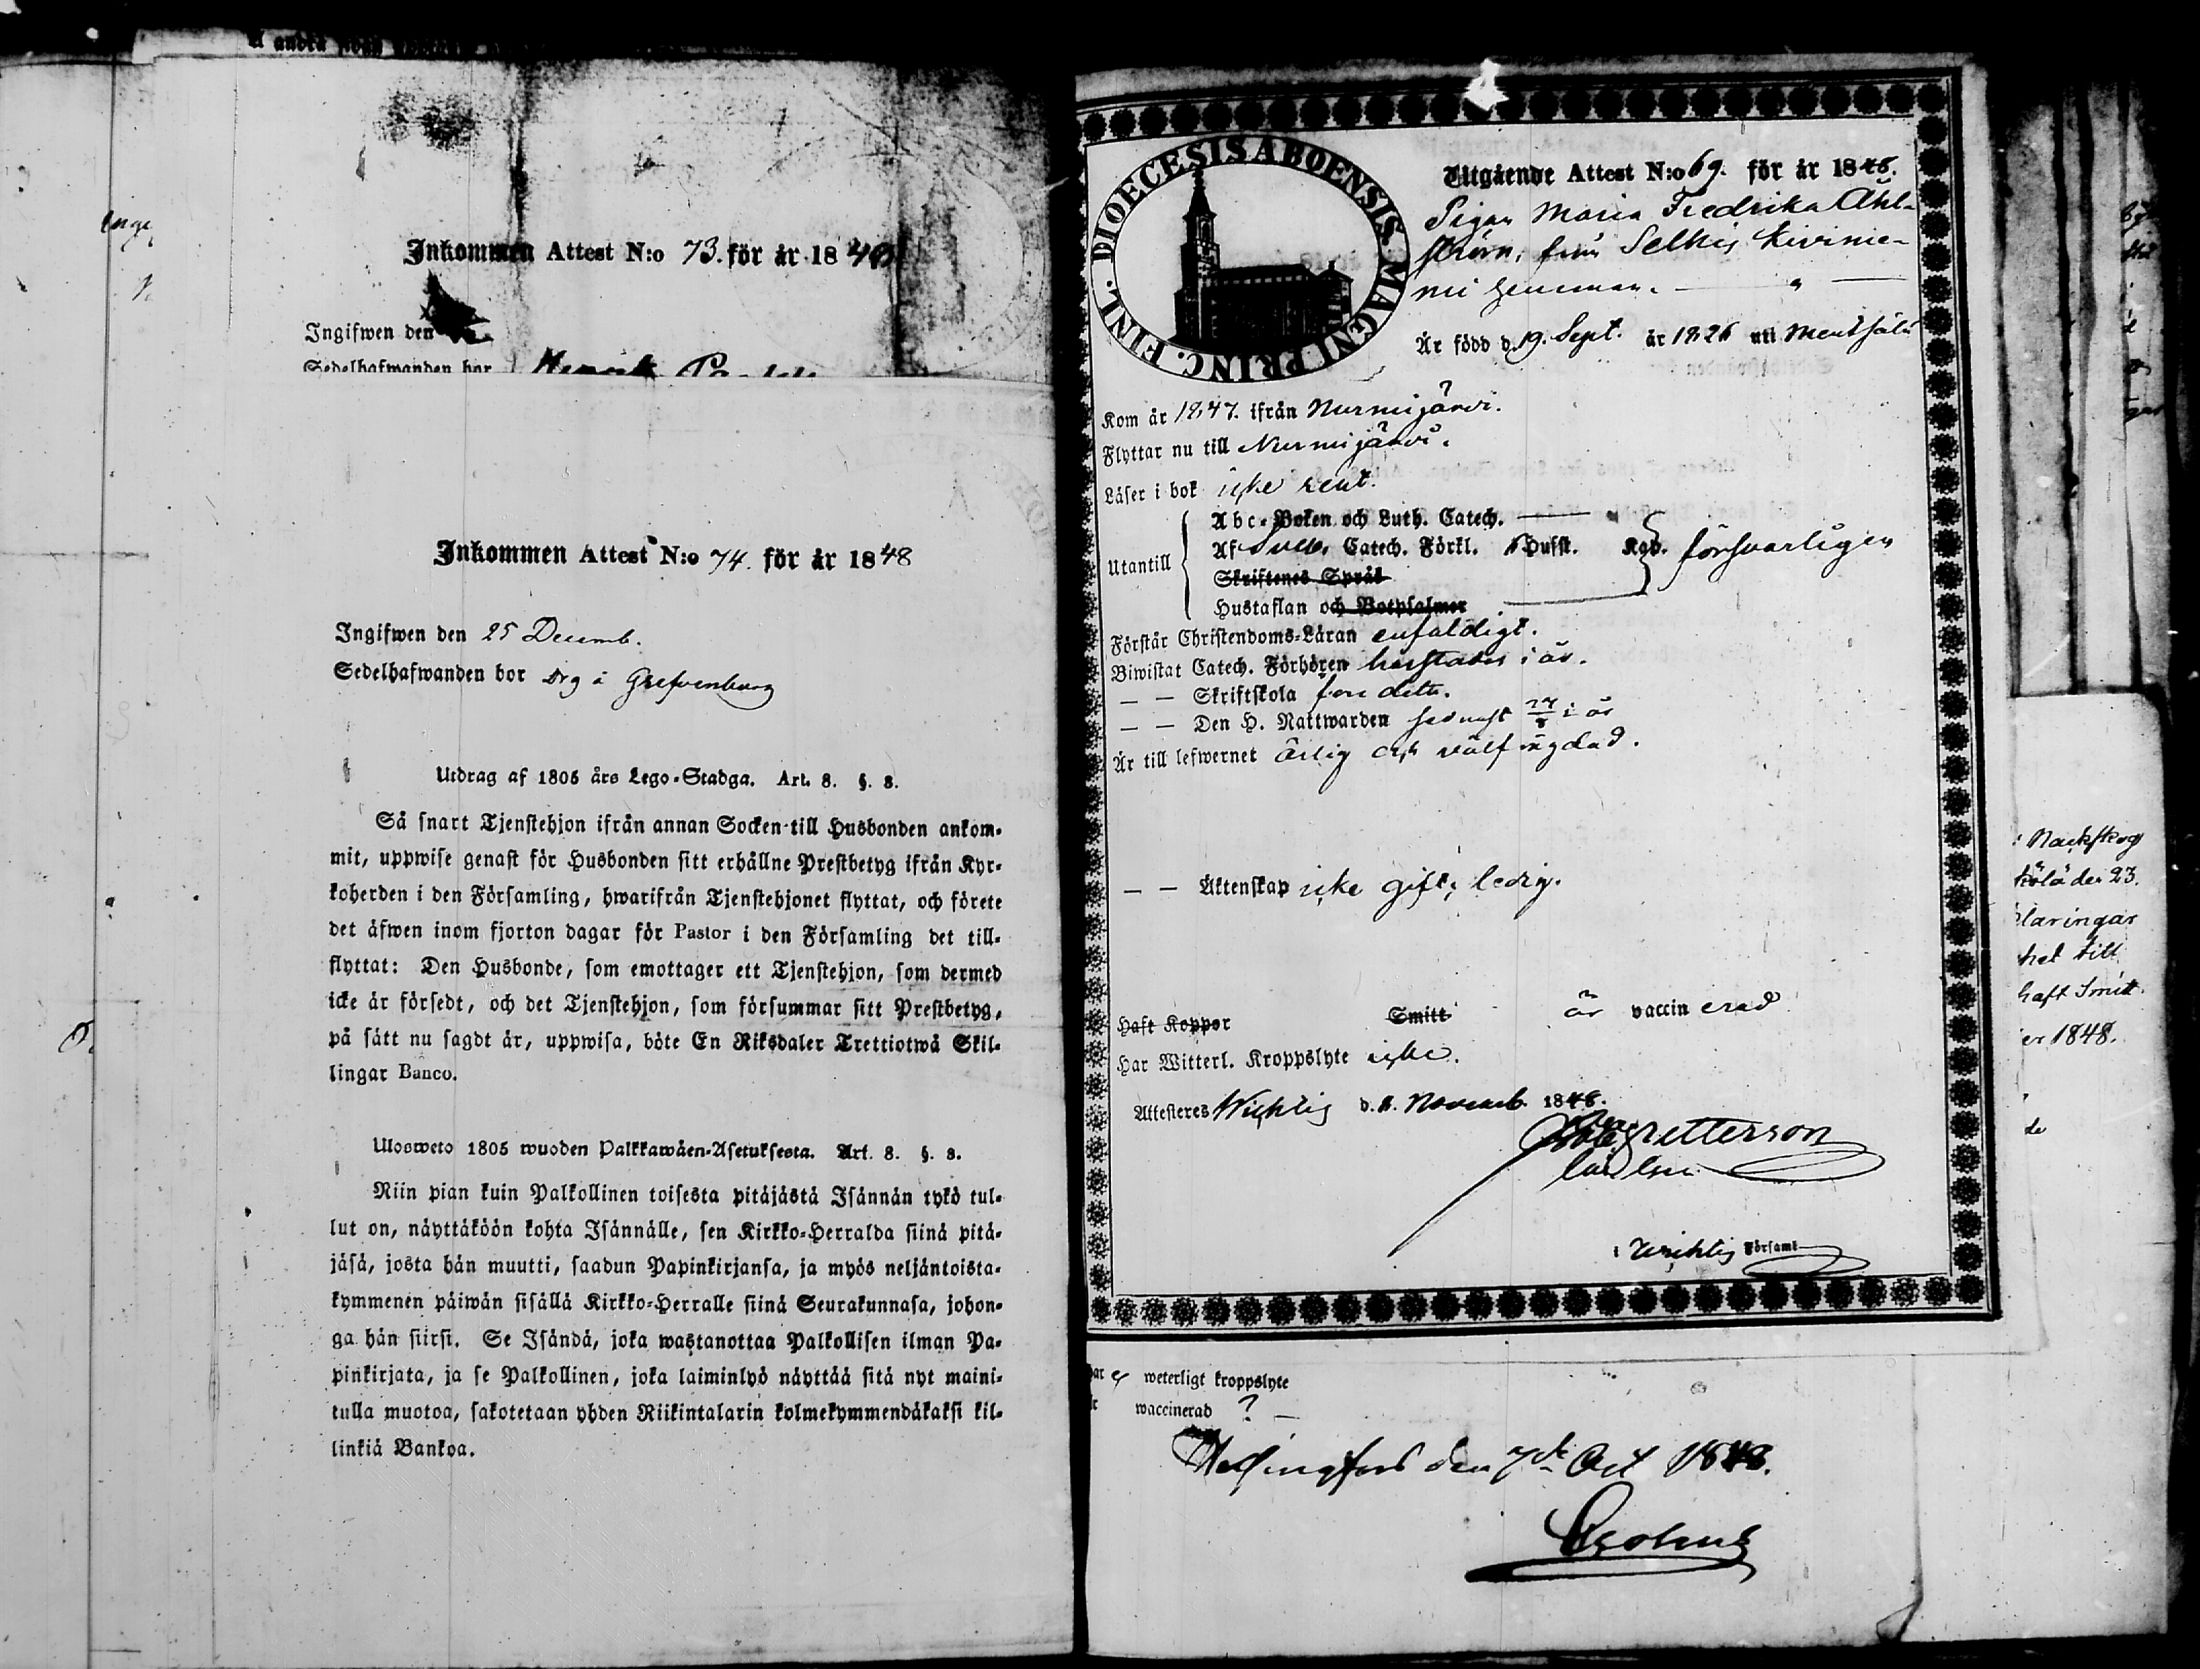 Inkommen Attest N:o 73. för år 1848
Ingifwen den
Sedelhafwanden bor Henrik
Inkommen Attest N:o 74. för år 1848
Ingifwen den 25 Decemb.
Sedelhafwanden bor Drg å Grefvenburg
Utdrag af 1805 års Lego-Stadga. Art. 8. §. 8.
Så snart Tjenstehjon ifrån annan Socken till Husbonden ankom-
mit, uppwise genast för Husbonden sitt erhållne Prestbetyg ifrån Kyr-
koherden i den Församling, hwarifrån Tjenstehjonet flyttat, och förete
det äfwen inom fjorton dagar för Pastor i den Församling det till-
flyttat: Den Husbonde, som emottager ett Tjenstehjon, som dermed
icke är försedt, och det Tjenstehjon, som försummar sitt Prestbetyg,
på sätt nu sagdt är, uppwisa, böte En Riksdaler Trettiotwå Skil-
lingar Banco.
Ulosweto 1805 wuoden Palkkawäen-Asetuksesta. Art. 8. §. 8.
Niin pian kuin Palkollinen toisesta pitäjästä Isännän tykö tul-
lut on, näyttäköön kohta Isännälle, sen Kirkko-Herralda siinä pitä-
jäsä, josta hän muutti, saadun Papinkirjansa, ja myös neljäntoista-
kymmenen päiwän sisällä Kirkko-Herralle siinä Seurakunnasa, johon-
ga hän siirsi. Se Isändä, joka wastanottaa Palkollisen ilman Pa-
pinkirjata, ja se Palkollinen, joka laiminlyö näyttää sitä nyt maini-
tulla muotoa, sakotetaan yhden Riikintalarin kolmekymmendäkaksi kil-
linkiä Bankoa.
DIOECESIS ABOENSIS MAGNI PRINC. FINL.
Utgående Attest N:o 69. för år 1848.
Pigan Maria Fredrika Ahl-
ström, från Selkis Kivinie-
mi hemman.
Är född d. 19. Sept. år 1826 uti Mentsälä
Kom år 1847. ifrån Nurmijärvi.
Flyttar nu till Nurmijärvi.
Läser i bok icke rent.
Utantill
Abc-Boken och Luth. Catech.
Af Sveb. Catech. Förkl. Hufst. Kap. försvarligen
Skriftenes Språk
Hustaflan och Botpsalmer
Förstår Christendoms-Läran enfaldigt.
Biwistat Catech. Förhören härstädes i år.
— — Skriftskola före detta.
— — Den H. Nattwarden sednast 27/8 i år
Är till lefwernet ärlig och välfrägdad.
— — Äktenskap icke gift; ledig.
Haft Koppor Smitt är vaccinerad
Har Witterl. Kroppslyte icke.
Attesteras Wichtis d. 8. Novemb. 1848.
Petterson
i Wichtis Församl
weterligt kroppslyte
waccinerad ? —
Helsingfors den 7de Oct 1848.
Nackskog
der 23.
laringar
het till
haft Smitt.
er 1848.
de